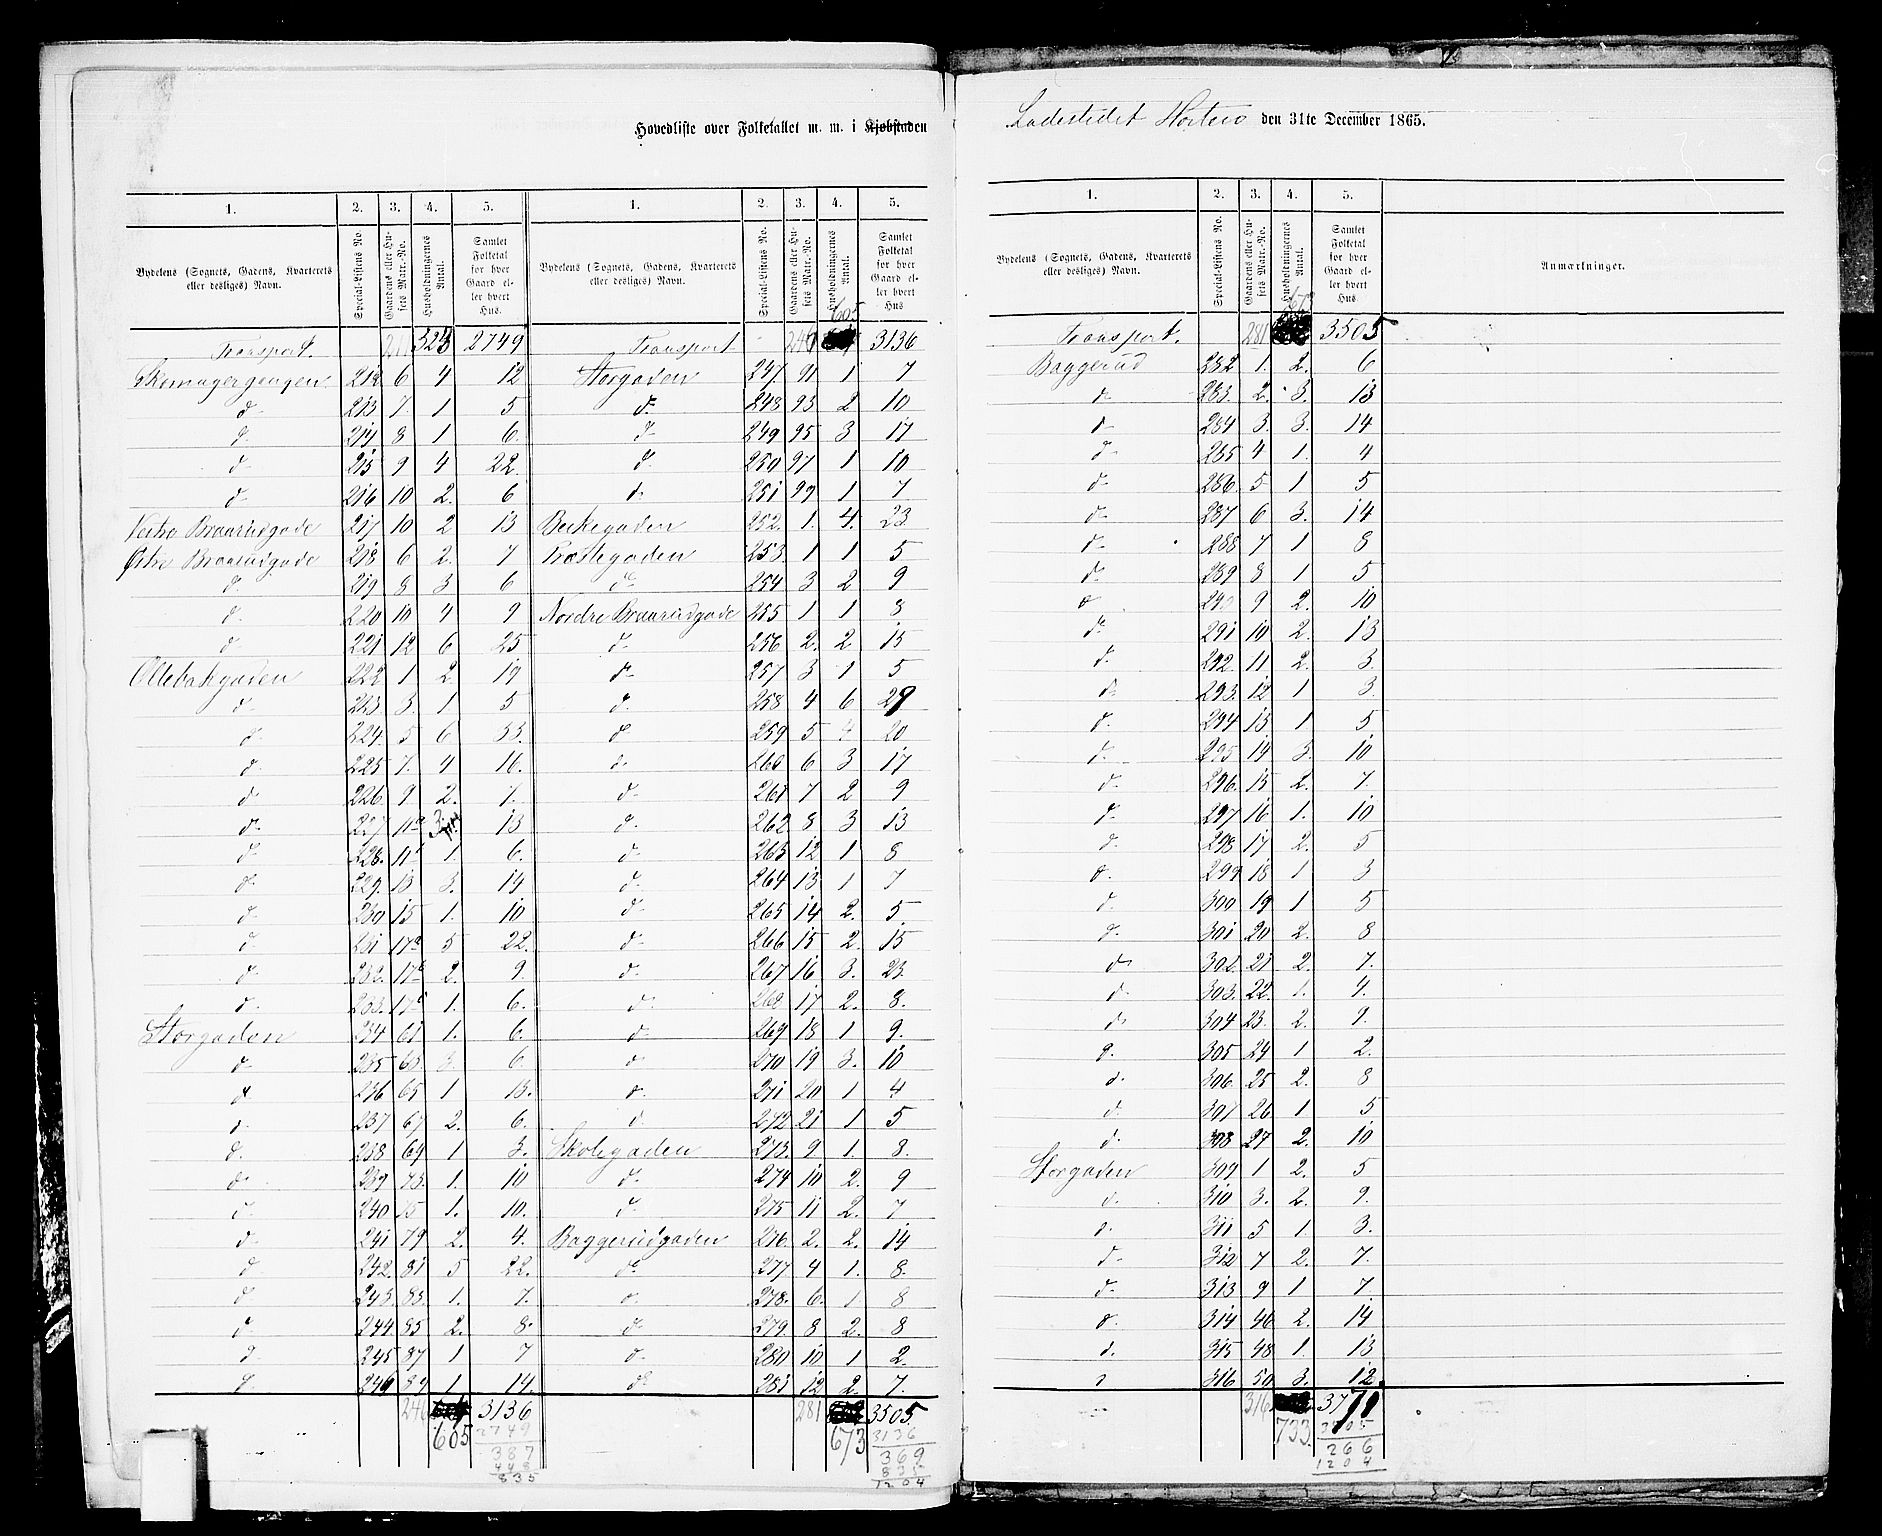 Hovedliste over Folketallet m. m. i Kjøbstaden Ladestedet Horten den 31te December 1865.
1. 2. 3. 4. 5. 1. 2. 3. 4. 5.
Bydelens (Sognets, Gadens, Kvarterets eller desliges) Navn. Special-Listens No. Gaardens eller Husets Matr.-No. Husholdningernes Antal. Samlet Folketal for hver Gaard eller hvert Hus. Bydelens (Sognets, Gadens, Kvarterets eller desliges) Navn. Special-Listens No. Gaardens eller Husets Matr.-No. Husholdningernes Antal. Samlet Folketal for hver Gaard eller hvert Hus
605
Transport. 211 2749 Transport 246 3136
Skomagergangen 212 6 4 12 Storgaden 247 91 1 7
d. 213 7. 1 5 d. 248 93 2 10
d. 214 8 1 6. d. 249 95 3 17
d. 215 9 4 22. d. 250 97 1 10
d. 216 10 2. 6 d. 251 99 1 7
Vestre Braarudgade 217 10 2 13 Bekkegaden 252. 1. 4. 23.
Østre Braarudgade 218 6 2. 7 253. 1 1 5
d. 219 8 3 6 d. 254 3 2 9
d. 220 10 4 9 Nordre Braarudgade 255 1 1 8
d. 221 12 6 25 d. 256 2. 2 15
Ollebakgaden 222 1 2 19 d. 257 3 1 5
d. 223. 3. 1 5 d. 258 4 6 29
d. 224. 5 6 33. d. 259 5 4 20
d. 225 7. 4 16. d. 260 6 3 17
d. 226. 9 2. 7. d. 261 7 2 9
d. 227 11a 3. 13 d. 262 8 3 13
d. 228. 11b 1. 6. d. 263 12 1 8
d. 229. 13 3. 19 d. 264 13 1 7
d. 230 15 1. 10 d. 265 14 2. 5.
d. 231 17a 5 22. d. 266 15 2. 15
d. 232. 17b 2. 9. d. 267 16 3. 23.
d. 233. 17c 1. 6. d. 268 17 2. 8.
Storgaden 234 61 1. 6. d. 269 18 1 9.
d. 235 63. 3. 6. d. 270 19 3. 10
d. 236 65 1 13. d. 271 20 1 4
d. 237 67 2. 6. d. 272 21 1 5
d. 238 69 1 3. Skolegaden 273. 9 1. 8.
d. 239 73. 1. 10 d. 274 10 2. 9
d. 240 75 1. 10. d. 275 11 2. 7
d. 241 79 2. 4. Baggerudgaden 276. 2. 2. 14
d. 242. 81 5 22. d. 277 4 1. 8.
d. 243. 83. 1. 7. d. 278. 6. 1 8
d. 244 85 2. 8. d. 279 8 2. 8
d. 245 87 1 7 d. 280 10 1 2.
d. 246 89 1 14. d. 281 12 2. 7.
246 3136 281 3505
605 2749 673 3136
387 369
448 835
835 1204
1. 2. 3. 4. 5.
Bydelens (Sognets, Gadens, Kvarterets eller desliges) Navn. Special-Listens No. Gaardens eller Husets Matr.-No. Husholdningernes Antal. Samlet Folketal for hver Gaard eller hvert Hus Anmærkninger.
673
Transport. 281 3505
Baggerud 282 1. 2. 6
d. 283. 2. 3. 13
d. 284 3. 3. 14
d. 285 4 1. 4
d. 286. 5 1 5
d. 287 6 3. 14
d. 288 7 1 8
d. 289 8 1 5
d. 290 9 2. 10
d. 291 10 2. 13
d. 292. 11 2. 3.
d. 293. 12 1 3.
d. 294 13 1 5
d. 295 14 3. 10
d. 296. 15 2. 7.
d. 297 16 1. 10
d. 298 17 2. 5
d. 299 18 1 3
d. 300 19 1 5
d. 301 20 2. 8
d. 302. 21 2. 7.
d. 303. 22. 1. 4.
d. 304 23. 2. 9.
d. 305 24 1 2.
d. 306. 25 2. 8
d. 307 26 1 5
d. 308 27 2. 10
Storgaden 309 1 2. 5
d. 310 3. 2. 9.
d. 311 5 1. 3.
d. 312 7 2. 7.
d. 313 9 1 7
d. 314 46 2. 14
d. 315 48 1. 13
d. 316 50 3. 12.
316 3771
733. 3505
266
1204